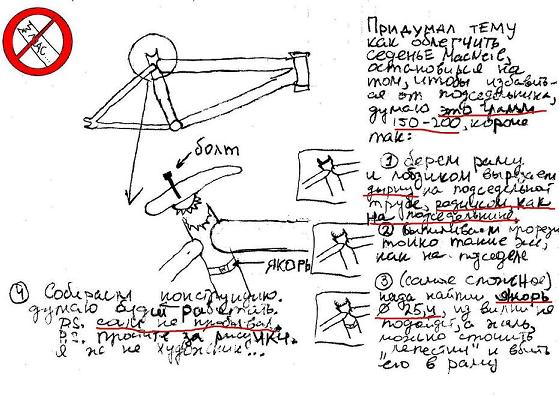 Придумал тему
как облегчить
седенье MacNeil,
остановился на
том, чтобы избавить-
ся от подседельника,
думаю это грамм
150-200, короче
так:
① берем раму
и лобзиком вырезаем
дырку на подседельной
трубе, радиусом как
на подседельнике.
② выпиливаем
только такие же,
как на подседе
③ (самое сложное)
надо найти якорь
⌀ 25,4, из вилки не
подойдёт, а жаль,
можно сточить
"лепестки" и вбить
его в раму
④ Собираем конструкцию.
думаю будет работать.
P.S. сам не пробовал.
P.S. простите за рисунки.
я ж не художник...
болт
ЯКОРЬ